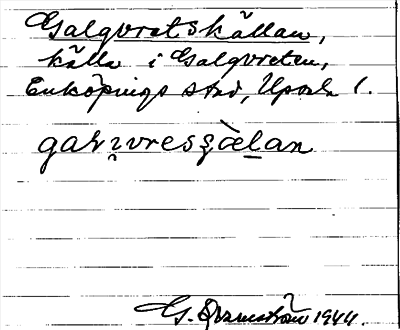 Galgvretskällan,
källa i Galgvreten,
Enköpings stad, Upsala l.
galgvresçàlan
G. Franzström 1944.